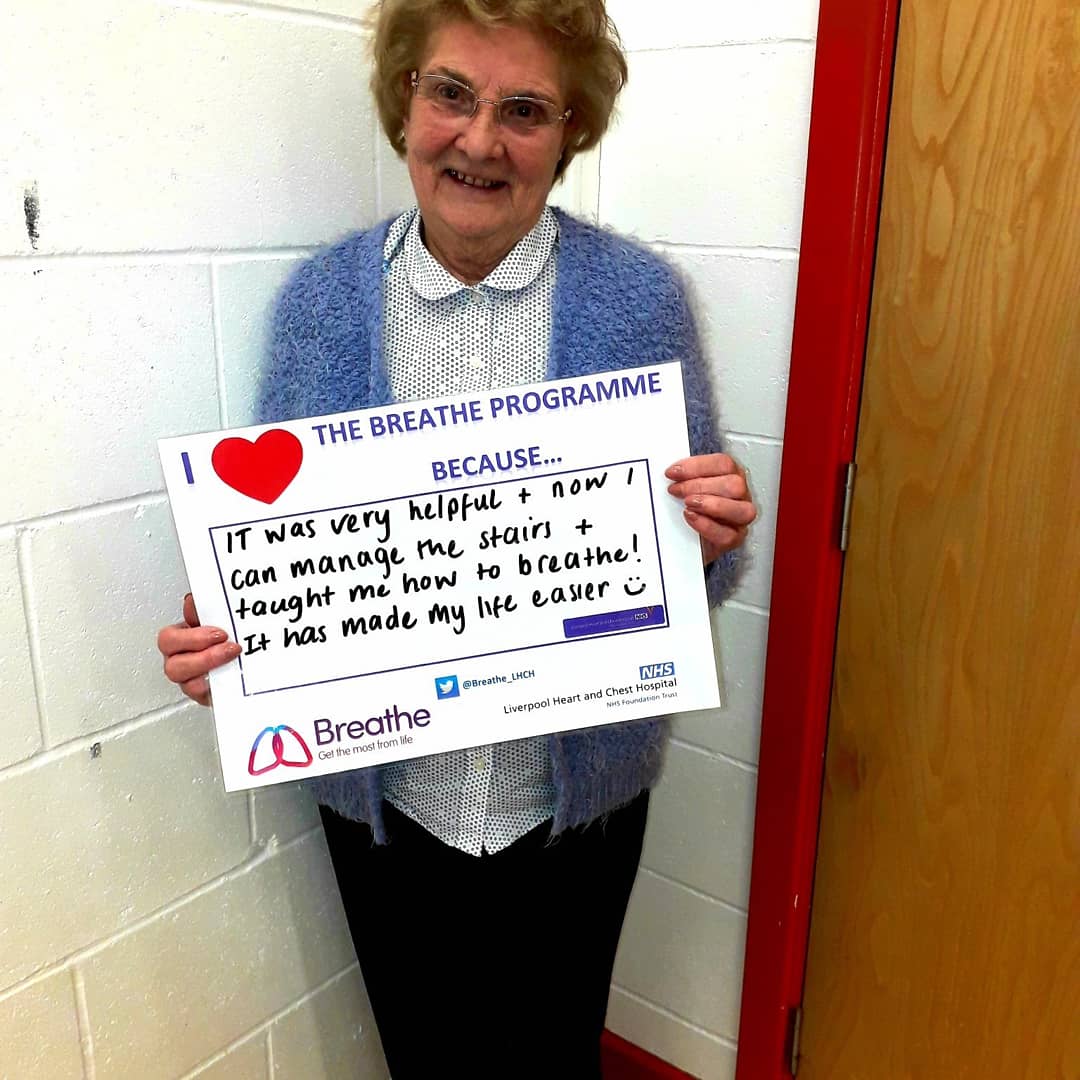 I ❤ THE BREATHE PROGRAMME
BECAUSE...
IT was very helpful + now I
can manage the stairs +
taught me how to breathe!
It has made my life easier ☺
NHS
@Breathe_LHCH
NHS
Liverpool Heart and Chest Hospital
NHS Foundation Trust
Breathe
Get the most from life